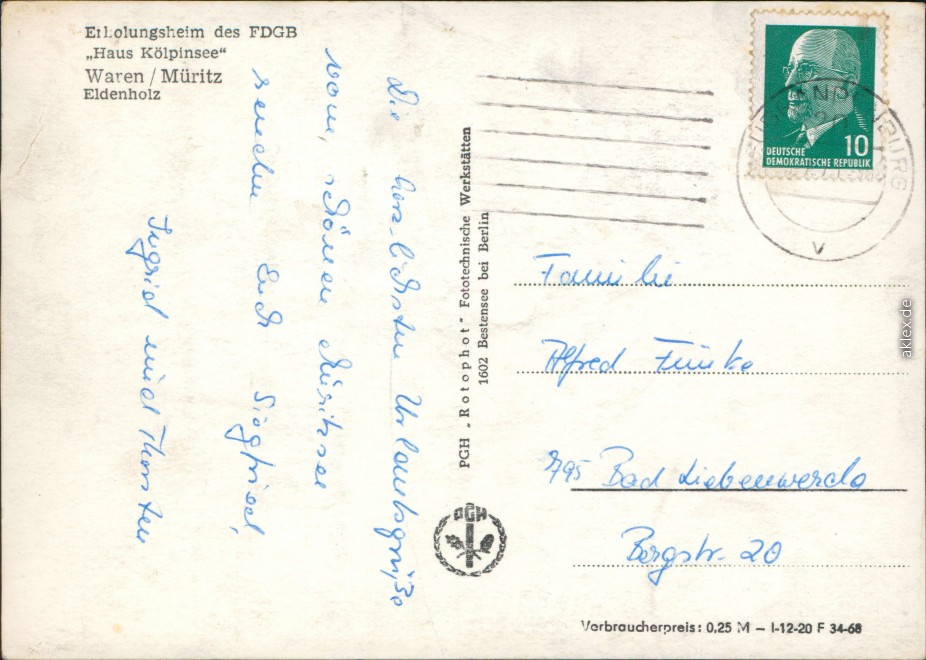 Erholungsheim des FDGB
„Haus Kölpinsee“
Waren / Müritz
Eldenholz
Die herzlichsten Urlaubsgrüße
vom schönen Müritzsee
senden Euch Siegfried,
Ingrid und Thorsten
PGH „Rotophot“ Fototechnische Werkstätten
1602 Bestensee bei Berlin
PGH
10
DEUTSCHE
DEMOKRATISCHE REPUBLIK
BURG
Familie
Alfred Funke
795 Bad Liebenwerda
Bergstr. 20
Verbraucherpreis: 0,25 M – I-12-20 F 34-68
aklex.de